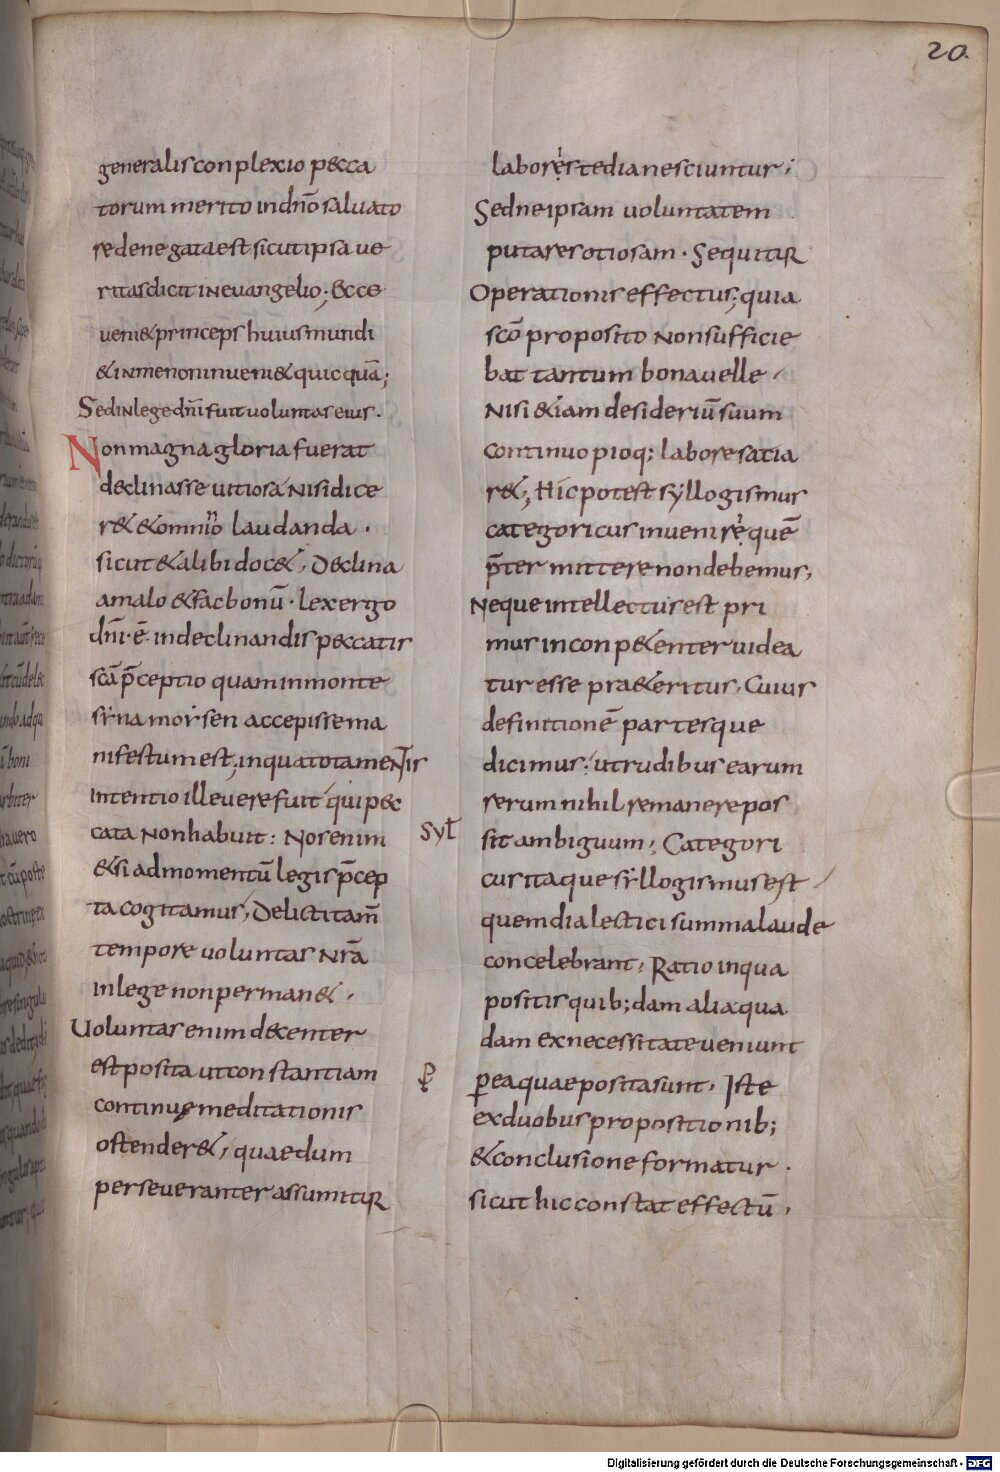 20
generalis conplexio pecca
torum merito in dn̄o saluato
re denegata est sicut ipsa ue
ritas dicit in euangelio; Ecce
ueni& princeps huius mundi
& in me non inueni& quicquā;
Sed in lege dn̄i fuit uoluntas eius.
Non magna gloria fuerat
declinasse uitiosa nisi dice
r& & omnino laudanda.
sicut & alibi doc&; Declina
a malo & fac bonū. lex ergo
dn̄i. ē. in declinandis peccatis
sc̄a p̄ceptio quam in monte
syna moysen accepisse ma
nifestum est; in qua tota mentis
Intentio illi uere fuit qui pec
cata non habuit: Nos enim
& si ad momentū legis p̄cep
ta cogitamus; Delicti tam̄
tempore uoluntas nr̄a
in lege non perman&;
Uoluntas enim decenter
est posita ut constantiam
continue meditationis
ostender&; quae dum
perseueranter assumitur
labores tedia nesciuntur;
Sed ne ipsam uoluntatem
putares otiosam. Sequitur
Operationis effectus; quia
sc̄o proposito non sufficie
bat tantum bona uelle
Nisi & iam desideriū suum
continuo pioq; labore satia
r&; Hic potest syllogismus
categoricus inuenire quē
p̄termittere non debemus;
Neque intellectus est pri
mus inconp&enter uidea
tur esse pra&eritus; Cuius
definitionē partesque
dicimus; ut rudibus earum
rerum nihil remanere pos
syl̄
sit ambiguum; Categori
cus itaque syllogismus est
quem dialectici summa laude
concelebrant; Ratio in qua
positis quib; dam alia quae
dam ex necessitate ueniunt
per ea quae posita sunt; Iste
ex duobus propositionib;
& conclusione formatur.
sicut hic constat effectū;
Digitalisierung gefördert durch die Deutsche Forschungsgemeinschaft - DFG